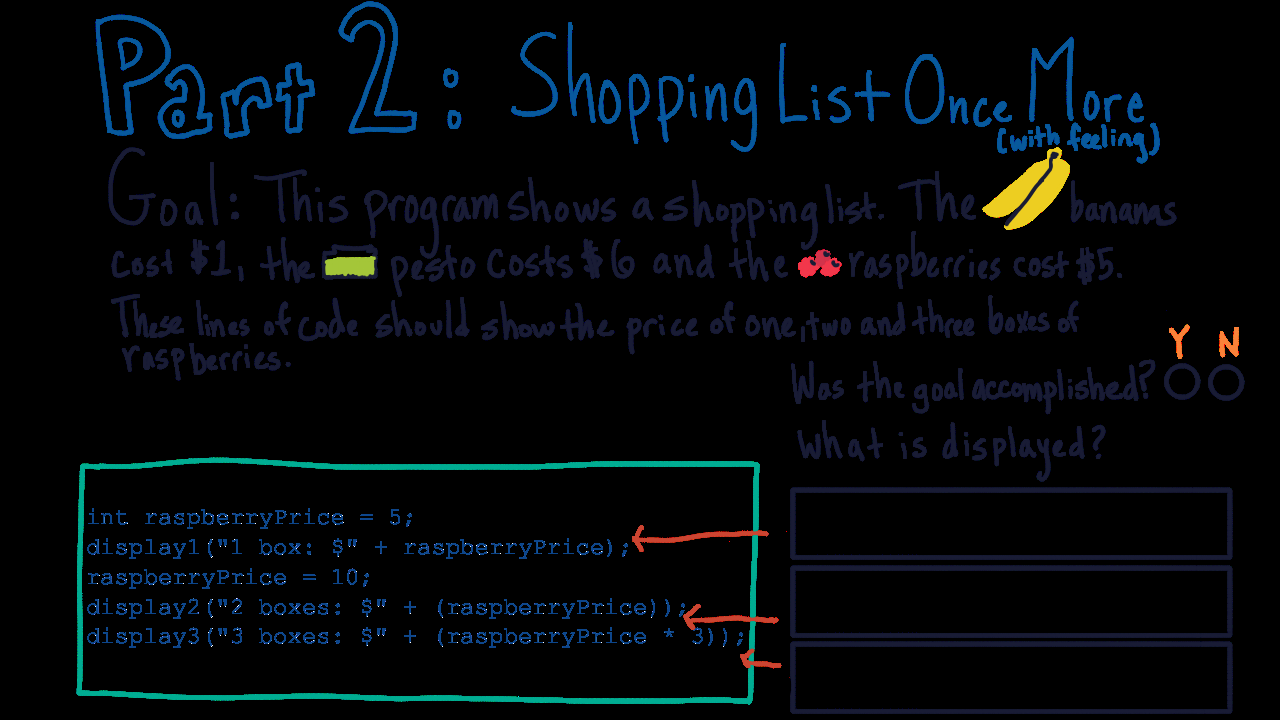 Part 2: Shopping List Once More
(with feeling)
Goal: This program shows a shopping list. The bananas
cost $1, the pesto costs $6 and the raspberries cost $5.
These lines of code should show the price of one, two and three boxes of
raspberries.
Y N
Was the goal accomplished?
What is displayed?
int raspberryPrice = 5;
display1("1 box: $" + raspberryPrice);
raspberryPrice = 10;
display2("2 boxes: $" + (raspberryPrice));
display3("3 boxes: $" + (raspberryPrice * 3));